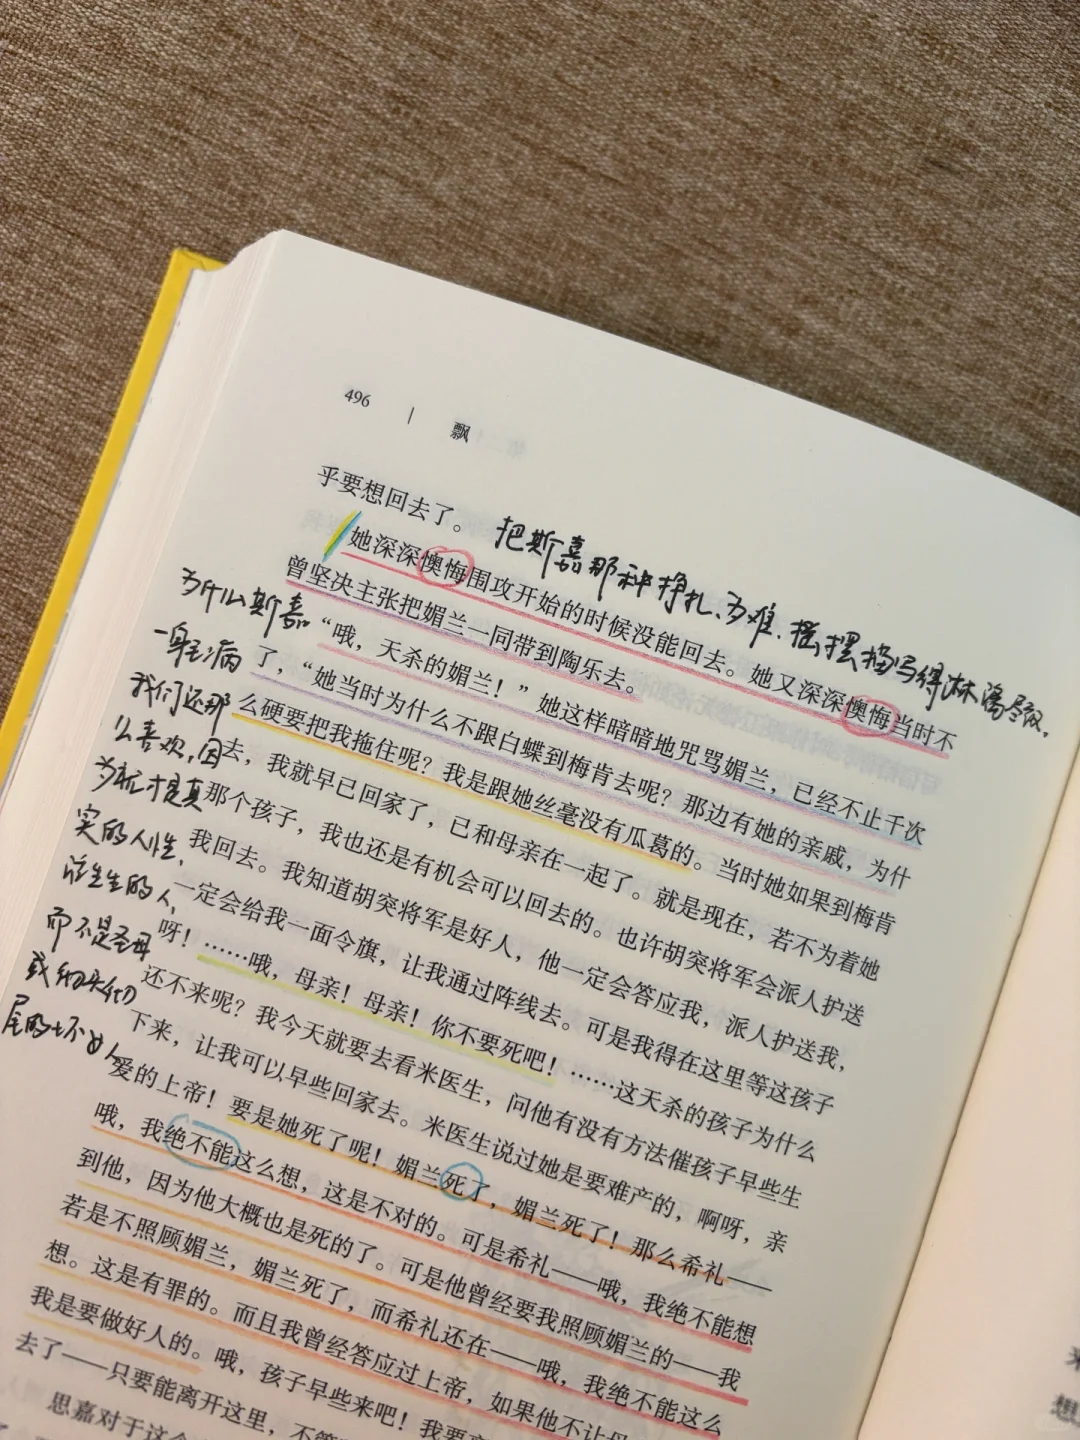 496 | 飘
乎要想回去了。
把斯嘉那种挣扎、为难、摇摆描写得淋漓尽致。
她深深懊悔围攻开始的时候没能回去。她又深深懊悔当时不
曾坚决主张把媚兰一同带到陶乐去。
“哦，天杀的媚兰！”她这样暗暗地咒骂媚兰，已经不止千次
了，“她当时为什么不跟白蝶到梅肯去呢？那边有她的亲戚，为什
么硬要把我拖住呢？我是跟她丝毫没有瓜葛的。当时她如果到梅肯
去，我就早已回家了，已和母亲在一起了。就是现在，若不为着她
那个孩子，我也还是有机会可以回去的。也许胡突将军会派人护送
我回去。我知道胡突将军是好人，他一定会答应我，派人护送我，
一定会给我一面令旗，让我通过阵线去。可是我得在这里等这孩子
呀！……哦，母亲！母亲！你不要死吧！……这天杀的孩子为什么
还不来呢？我今天就要去看米医生，问他有没有方法催孩子早些生
下来，让我可以早些回家去。米医生说过她是要难产的，啊呀，亲
爱的上帝！要是她死了呢！媚兰死了，媚兰死了！那么希礼——
哦，我绝不能这么想，这是不对的。可是希礼——哦，我绝不能想
到他，因为他大概也是死的了。可是他曾经要我照顾媚兰的——我
若是不照顾媚兰，媚兰死了，而希礼还在——哦，我绝不能这么
想。这是有罪的。而且我曾经答应过上帝，如果他不让母
我是要做好人的。哦，孩子早些来吧！我要
去了——只要能离开这里，不管
思嘉对于这个
为什么斯嘉
一身毛病
我们还那
么喜欢，因
为她才是真
实的人性，
活生生的人，
而不是圣母
或彻头彻
尾的坏女人
想